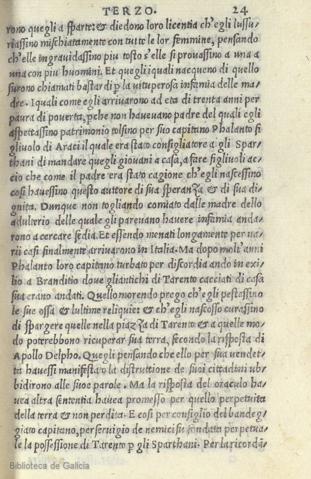 TERZO. 24
rono quegli a sparte: & diedono loro licentia ch'egli lussu
riassino mischiatamente con tutte lor femmine, pensando
ch'elle ingravidassino piu tosto s'elle si provassino a una a
una con piu huomini. Et quegli quali nacqueno di quello
furono chiamati bastardi p la vituperosa infamia delle ma
dre. I quali come egli arrivarono ad eta di trenta anni per
paura di poverta, pche non havevano padre del quali egli
aspettassino patrimonio tolsino per suo capitano Phalanto fi
gliuolo di Araci il quale era stato consigliatore a gli Spar
thani di mandare quegli giovani a casa, a fare figliuoli ac
cio che come il padre era stato cagione ch'egli nascessino
cosi havessino questo auttore di sua speranza & di sua di
gnita. Dunque non togliando comiato dalle madre dello
adulterio delle quale gli parevano havere infamia anda
rono a cercare sedia. Et essendo menati longamente per va
rii casi finalmente arrivarono in Italia. Ma dopo molt'anni
Phalanto loro capitano turbato per discordia ando in exi
lio a Branditio dove gliantichi di Tarento cacciati di casa
sua erano andati. Quello morendo prego ch'egli pestassino
le sue ossa & l'ultime reliquie: & ch'egli nascoso curassino
di spargere quelle nella piazza di Tarento & a quelle mo
do poterebbono ricuperar sua terra, secondo la risposta di
Apollo Delpho. Quegli pensando che ello per sua vendet
ta havessi manifesta vo la distruttione de suoi citadini ub
bidirono alle suoe parole. Ma la risposta del oraculo ha
veva altra sententia haveva promesso per quello perpetuita
della terra & non perdita. E cosi per consiglio del bandeg
giato capitano, per servigio de nemici fu fondata perpetua
le la possessione di Tarento p gli Sparthani. Per la ricordā
Biblioteca de Galicia